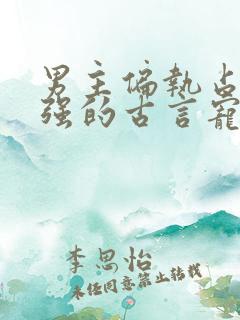 男主偏执占
强的古言宠
李思怡
未经同意禁止转载